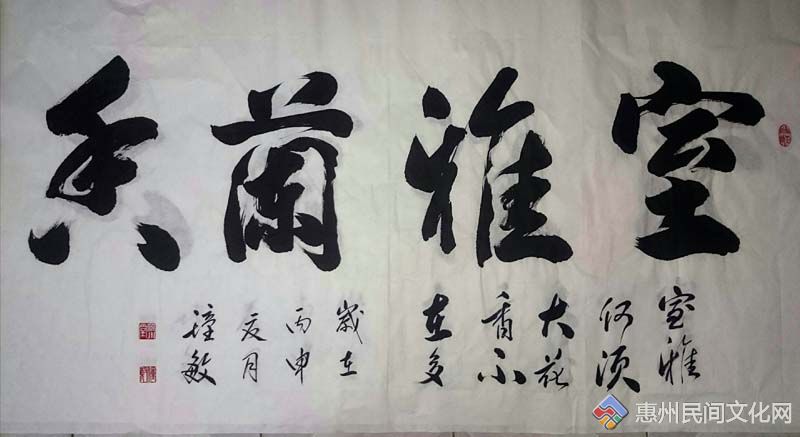 室雅蘭香
室雅
何须
大花
香不
在多
歲在
丙申
夏月
敏
惠州民间文化网